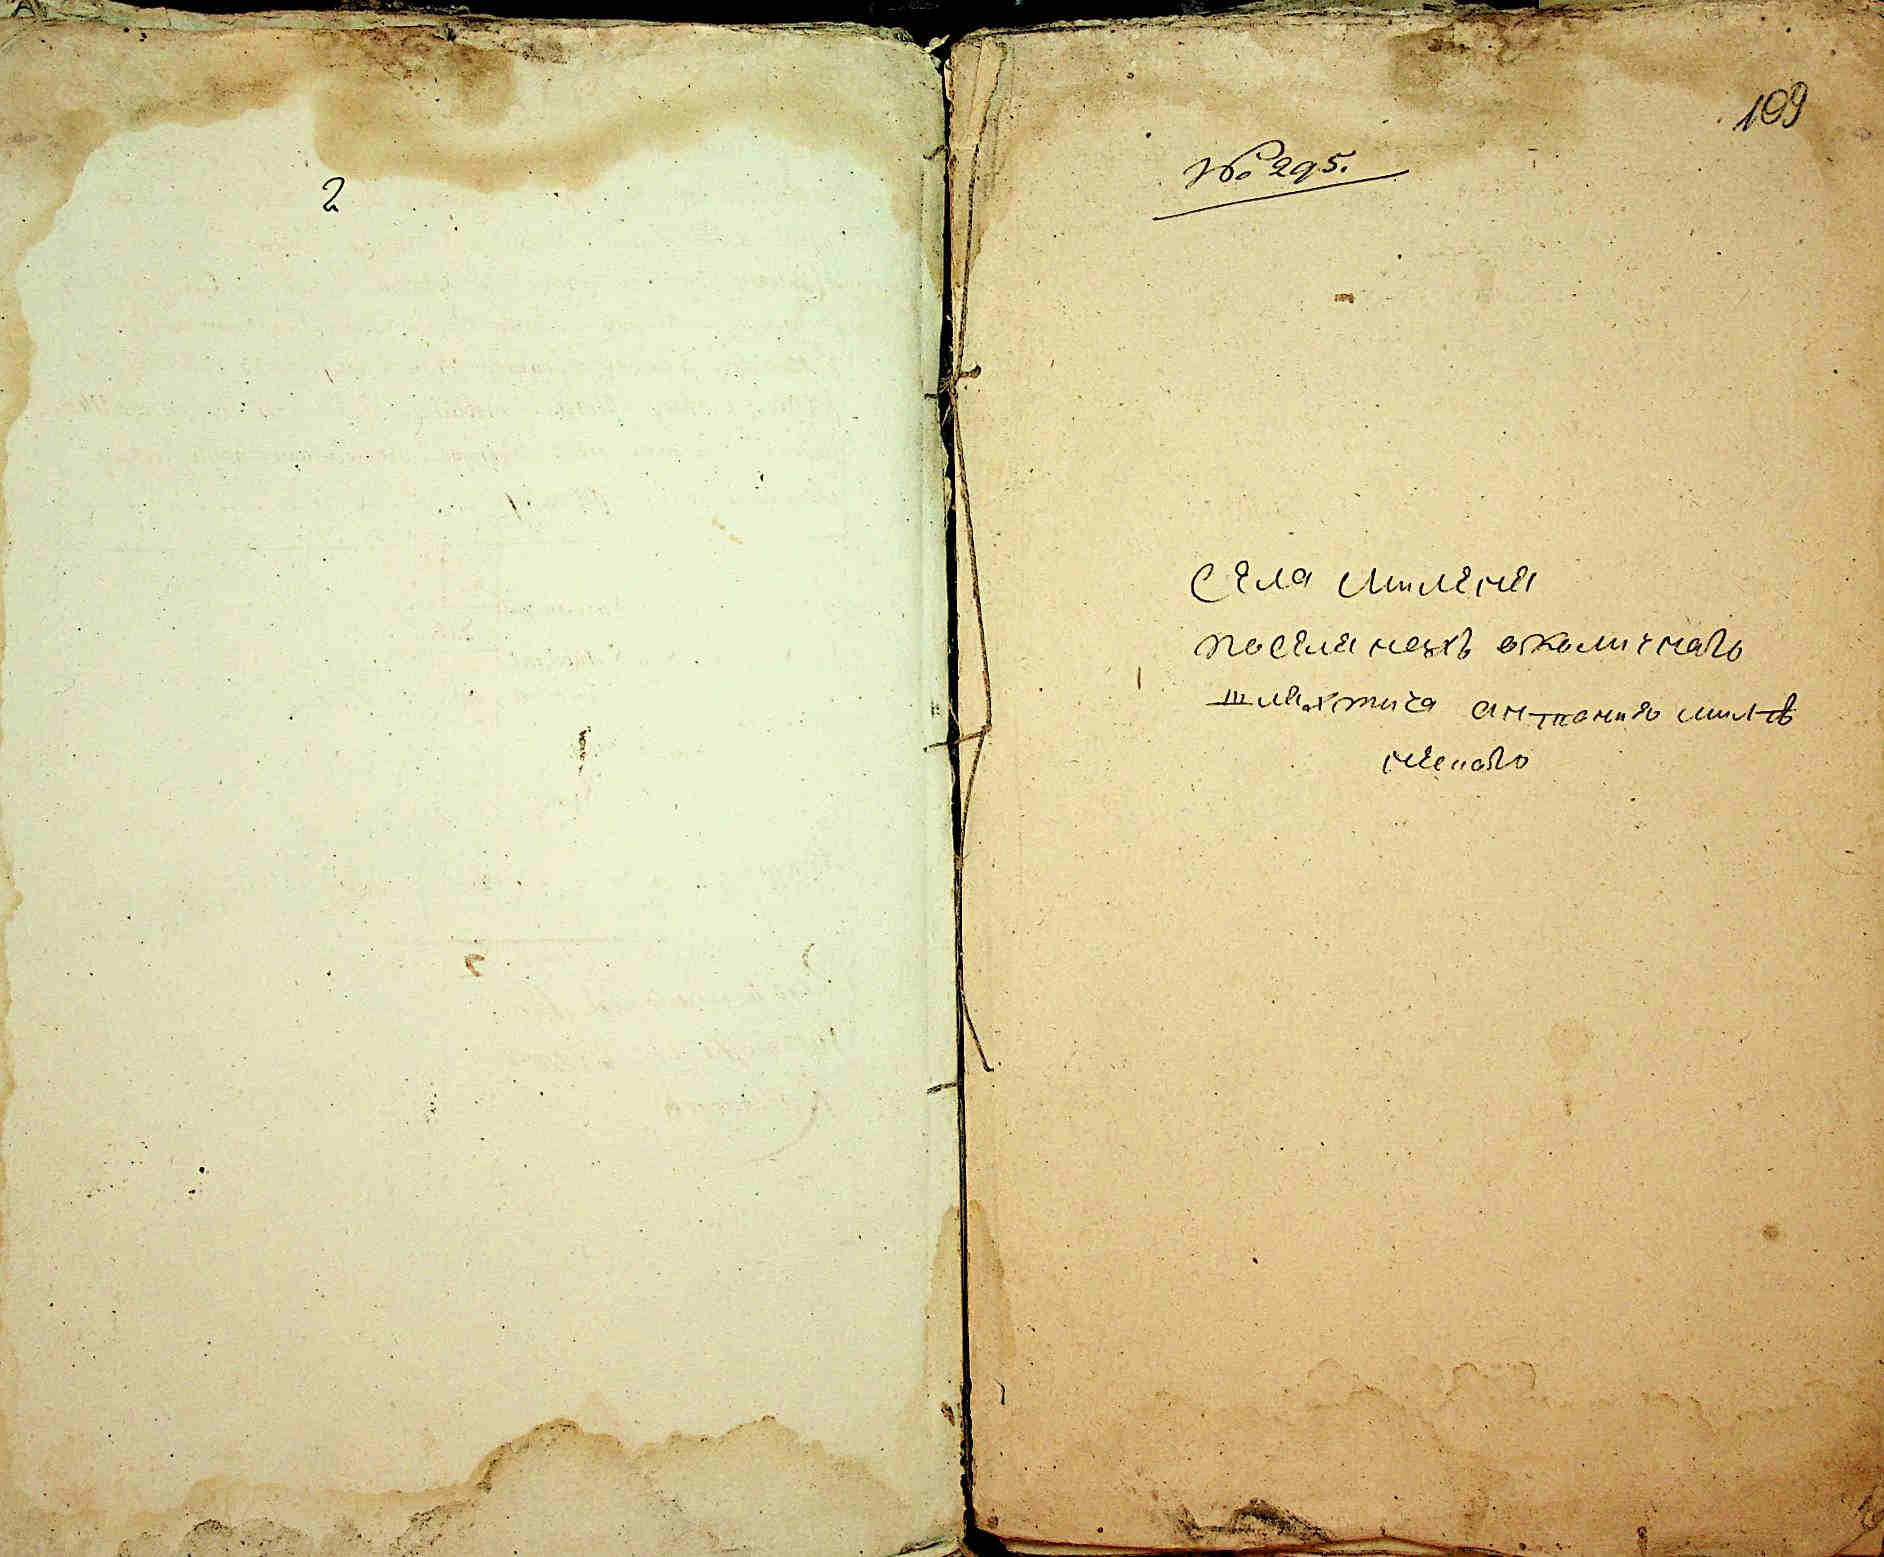 2
109
№ 295.
Села Миленя
поселянехъ околичнаго
шляхтича антония миле
нскаго